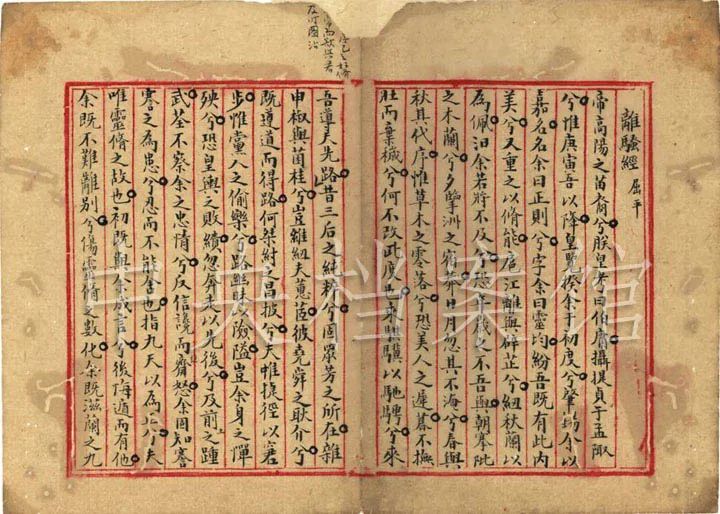 離騷經 屈平
帝高陽之苗裔兮朕皇考曰伯庸攝提貞于孟陬
兮惟庚寅吾以降皇覽揆余于初度兮肇錫余以
嘉名名余曰正則兮字余曰靈均紛吾既有此內
美兮又重之以脩能扈江離與辟芷兮紉秋蘭以
為佩汩余若將不及兮恐年歲之不吾與朝搴阰
之木蘭兮夕攬洲之宿莽日月忽其不淹兮春與
秋其代序惟草木之零落兮恐美人之遲暮不撫
壯而棄穢兮何不改此度也乘騏驥以馳騁兮來
吾導夫先路昔三后之純粹兮固眾芳之所在雜
申椒與菌桂兮豈維紉夫蕙茝彼堯舜之耿介兮
既遵道而得路何桀紂之昌披兮夫惟捷徑以窘
步惟黨人之偷樂兮路幽昧險隘豈余身之憚
殃兮恐皇輿之敗績忽奔走以先後兮及前之踵
武荃不察余之忠情兮反信讒而齌怒余固知謇
謇之為患兮忍而不能舍也指九天以為正兮夫
唯靈脩之故也初既與余成言兮後悔遁而有他
余既不難離別兮傷靈脩之數化余既滋蘭之九
中央档案馆